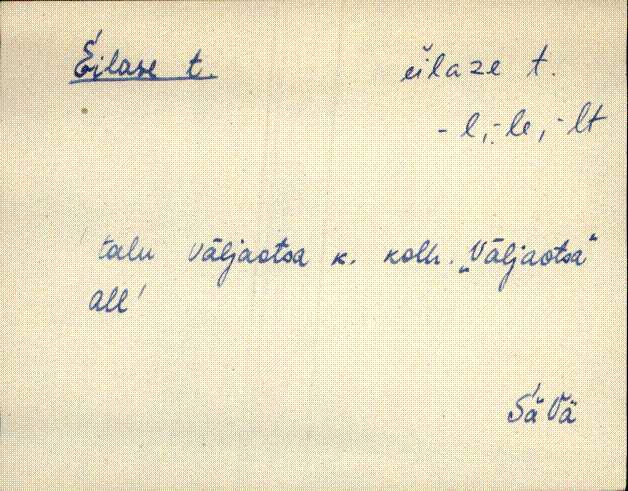 Éilase t. eilaze t.
- l, - le, - lt
talu Väljaotsa k. kolh. „Väljaotsa"
all'
Sá Vä